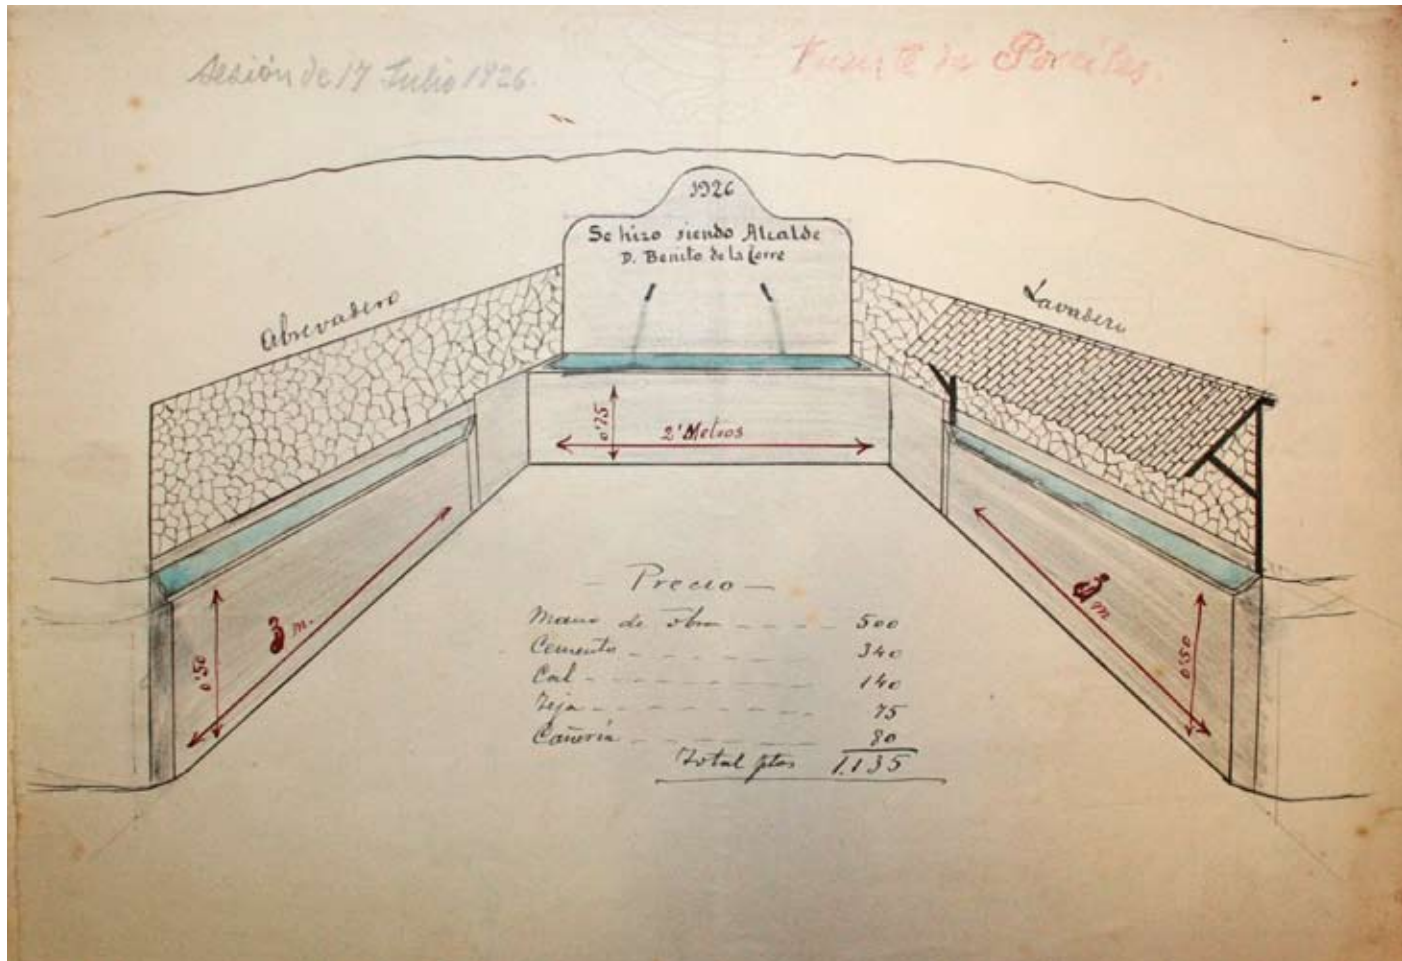 Sesión de 17 Julio 1926.
Fuente de Pocillas.
1926
Se hizo siendo Alcalde
D. Benito de la Torre
Abrevadero
Lavadero
0'75
2' Metros
0'50
3 m.
3 m
0'50
— Precio —
Mano de obra - - - - - 500
Cemento - - - - - - - 340
Cal - - - - - - - - 140
Teja - - - - - - - - 75
Cañería - - - - - - - 80
Total ptas 1.135